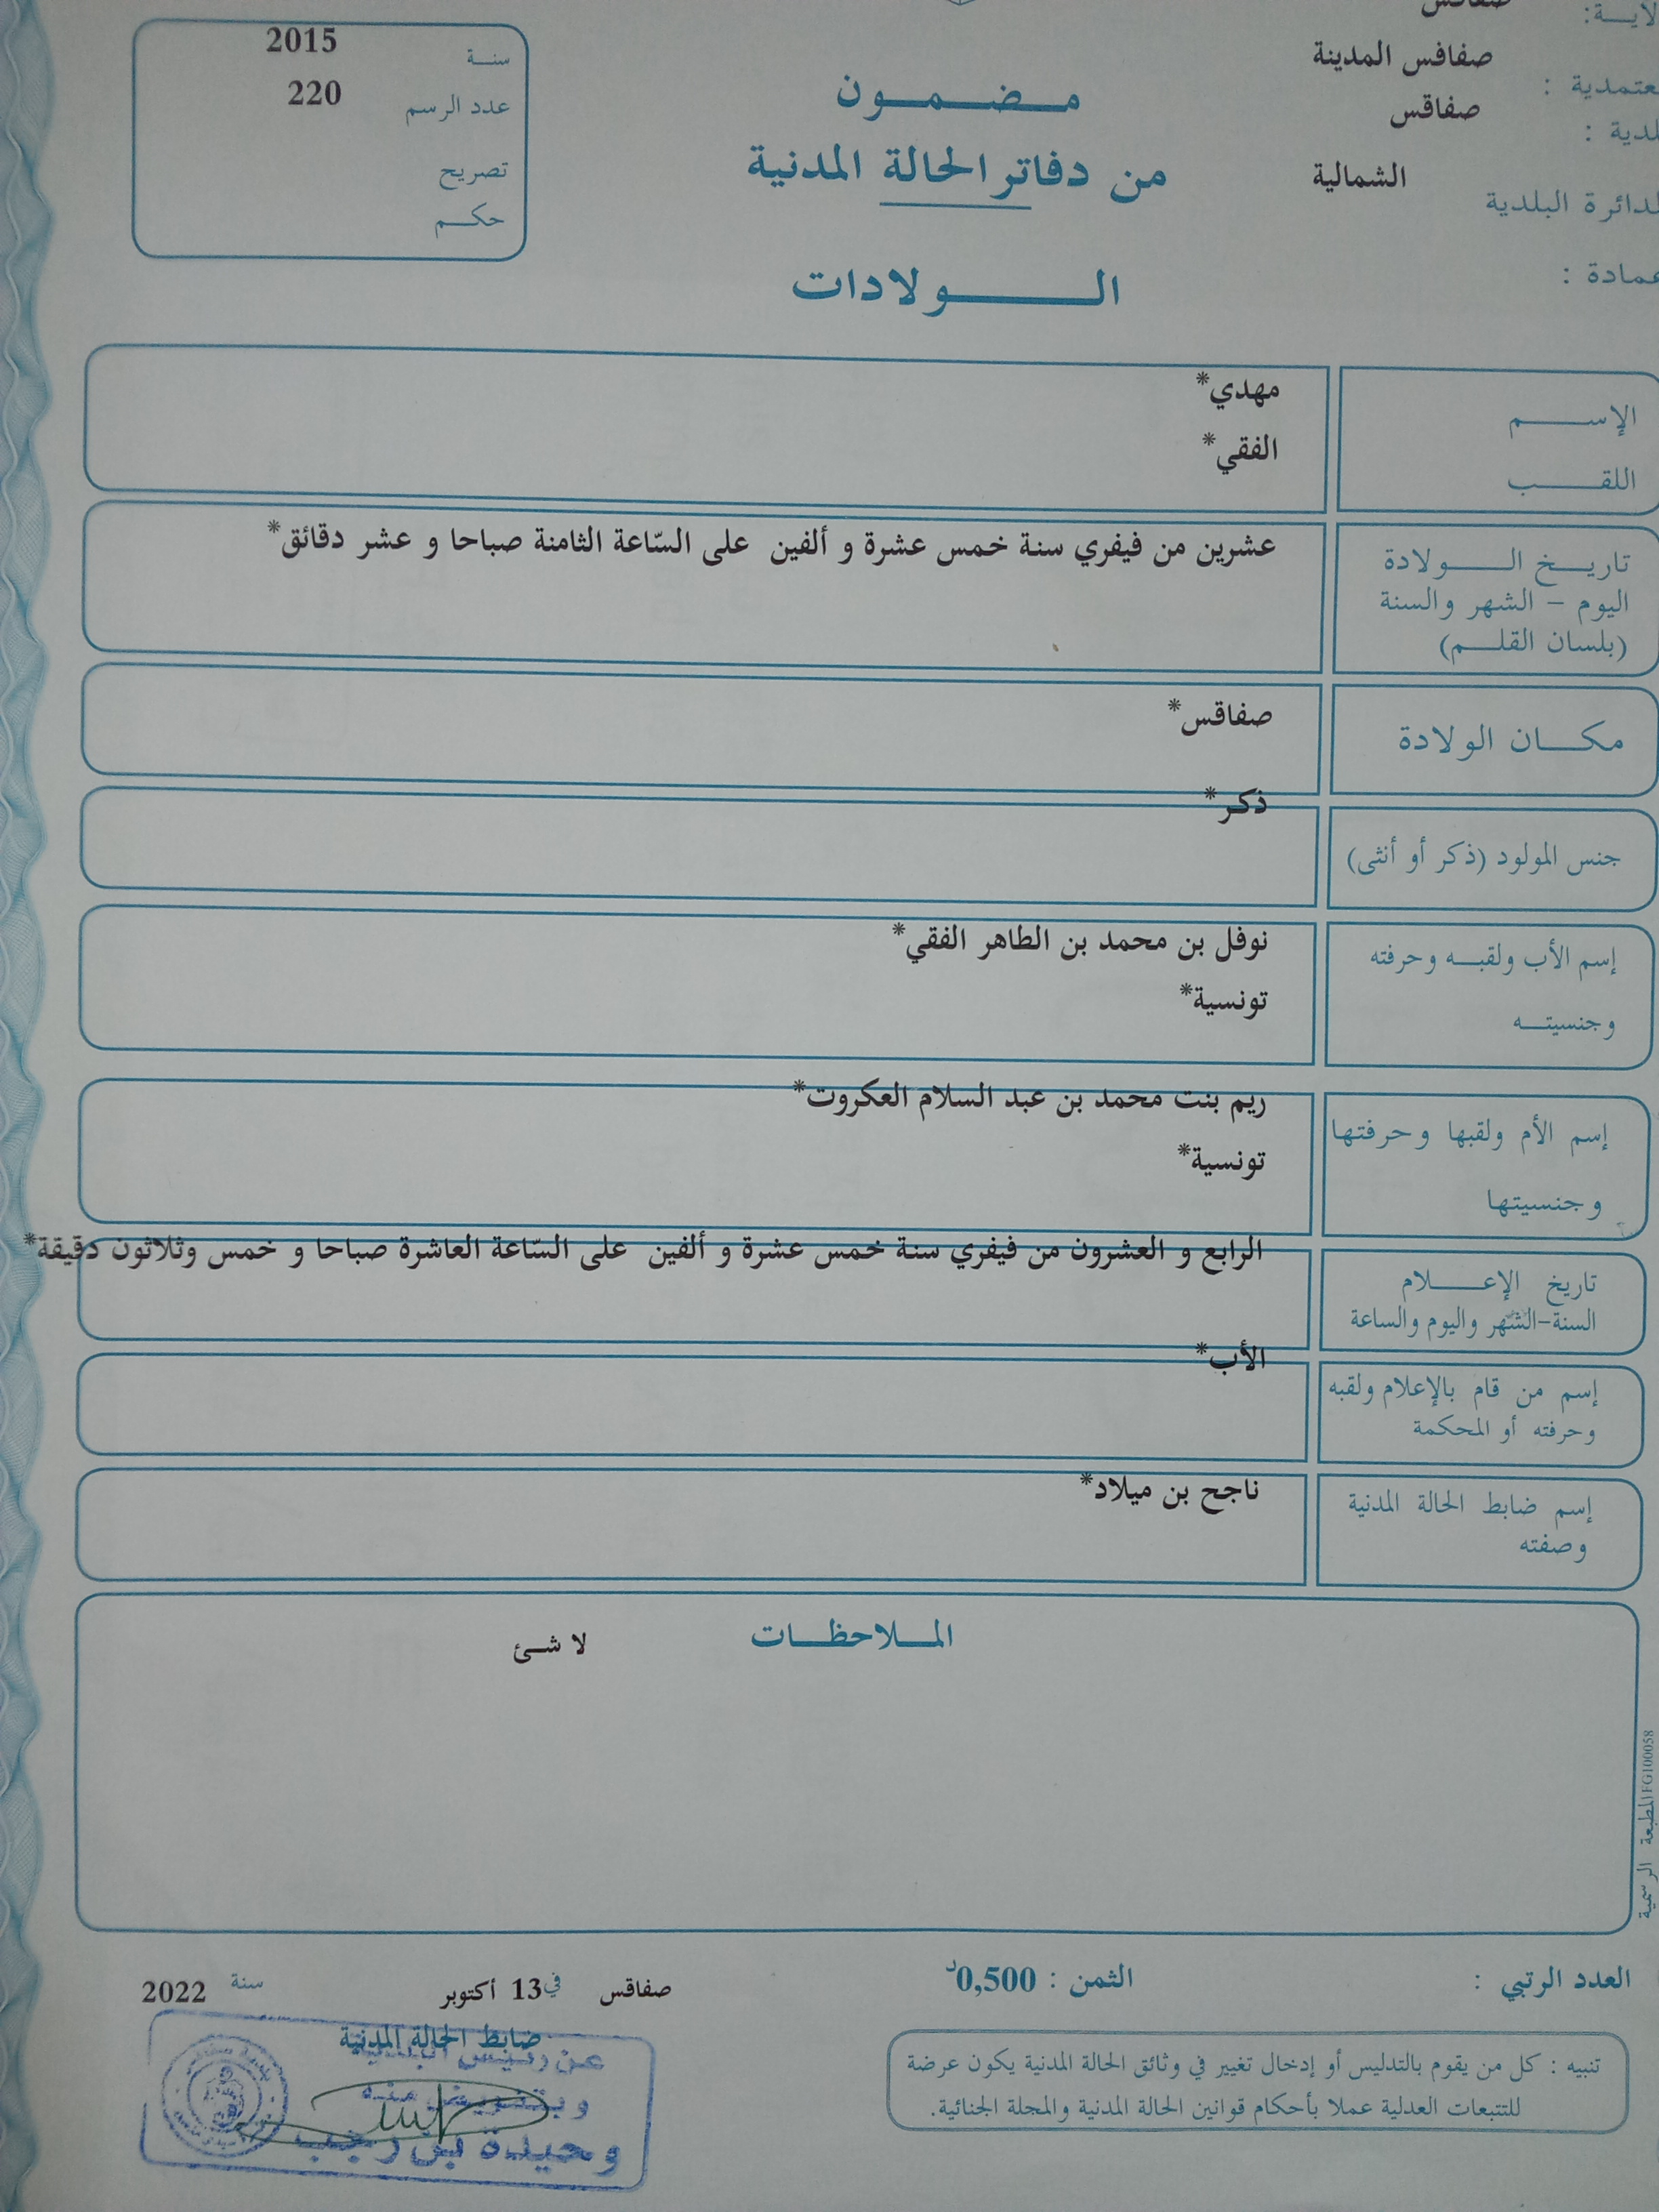 صفاقس
صفاقس المدينة
صفاقس
لدائرة البلدية الشمالية
مضمون
من دفاتر الحالة المدنية
الولادات
سنة 2015
عدد الرسم 220
تصريح
حكم
الإسم مهدي*
اللقب الفقي*
تاريخ الولادة عشرين من فيفري سنة خمس عشرة و ألفين على السّاعة الثامنة صباحا و عشر دقائق*
اليوم - الشهر والسنة
(بلسان القلم)
مكان الولادة صفاقس*
جنس المولود (ذكر أو أنثى) ذكر*
إسم الأب ولقبه وحرفته نوفل بن محمد بن الطاهر الفقي*
وجنسيته تونسية*
إسم الأم ولقبها وحرفتها ريم بنت محمد بن عبد السلام العكروت*
وجنسيتها تونسية*
تاريخ الإعلام الرابع و العشرون من فيفري سنة خمس عشرة و ألفين على السّاعة العاشرة صباحا و خمس وثلاثون دقيقة*
السنة-الشهر واليوم والساعة
إسم من قام بالإعلام ولقبه الأب*
وحرفته أو المحكمة
إسم ضابط الحالة المدنية ناجح بن ميلاد*
وصفته
الملاحظات لا شئ
المطبعة الرسمية FG100058
العدد الرتبي : الثمن : 0,500د صفاقس في 13 أكتوبر سنة 2022
ضابط الحالة المدنية
تنبيه : كل من يقوم بالتدليس أو إدخال تغيير في وثائق الحالة المدنية يكون عرضة
للتتبعات العدلية عملا بأحكام قوانين الحالة المدنية والمجلة الجنائية.
عن رئيس البلدية
وبتفويض منه
وحيدة بن رجب